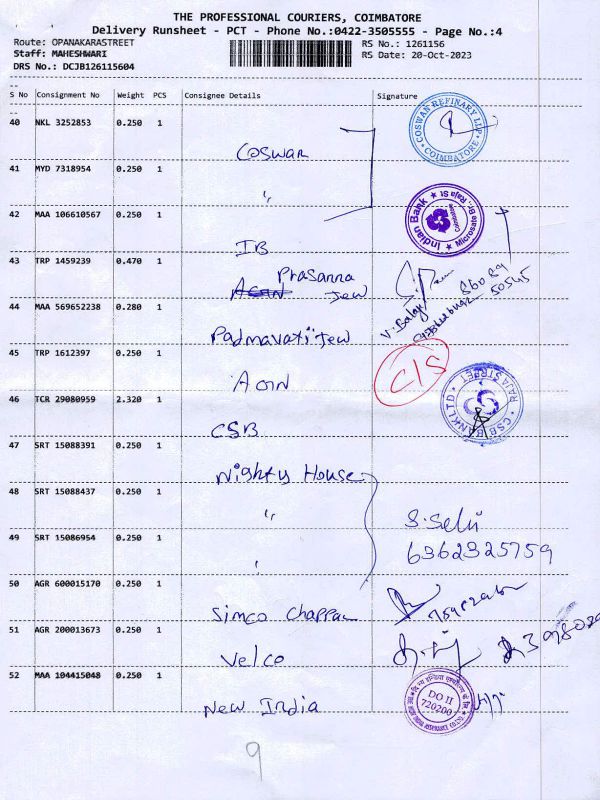 THE PROFESSIONAL COURIERS, COIMBATORE
Delivery Runsheet - PCT - Phone No.:0422-3505555 - Page No.:4
Route: OPANAKARASTREET
RS No.: 1261156
Staff: MAHESHWARI
RS Date: 20-Oct-2023
DRS No.: DCJB126115604
S No Consignment No Weight PCS Consignee Details Signature
40 NKL 3252853 0.250 1
Coswan
COSWAN REFINARY LLP COIMBATORE
41 MYD 7318954 0.250 1
"
42 MAA 106610567 0.250 1
IB
Indian Bank Microsate Br. Raja St Coimbatore
43 TRP 1459239 0.470 1
Prasanna
Jew
44 MAA 569652238 0.280 1
Padmavati Jew
V. Balaji
86089
50545
45 TRP 1612397 0.250 1
C/S
46 TCR 29080959 2.320 1
CSB
CSB BANK LTD RAJA STREET
47 SRT 15088391 0.250 1
Nighty House
48 SRT 15088437 0.250 1
"
S. Selvi
49 SRT 15086954 0.250 1
"
6362325759
50 AGR 600015170 0.250 1
Simco Chappal
51 AGR 200013673 0.250 1
Velco
52 MAA 104415048 0.250 1
New India
DO II
720200
9